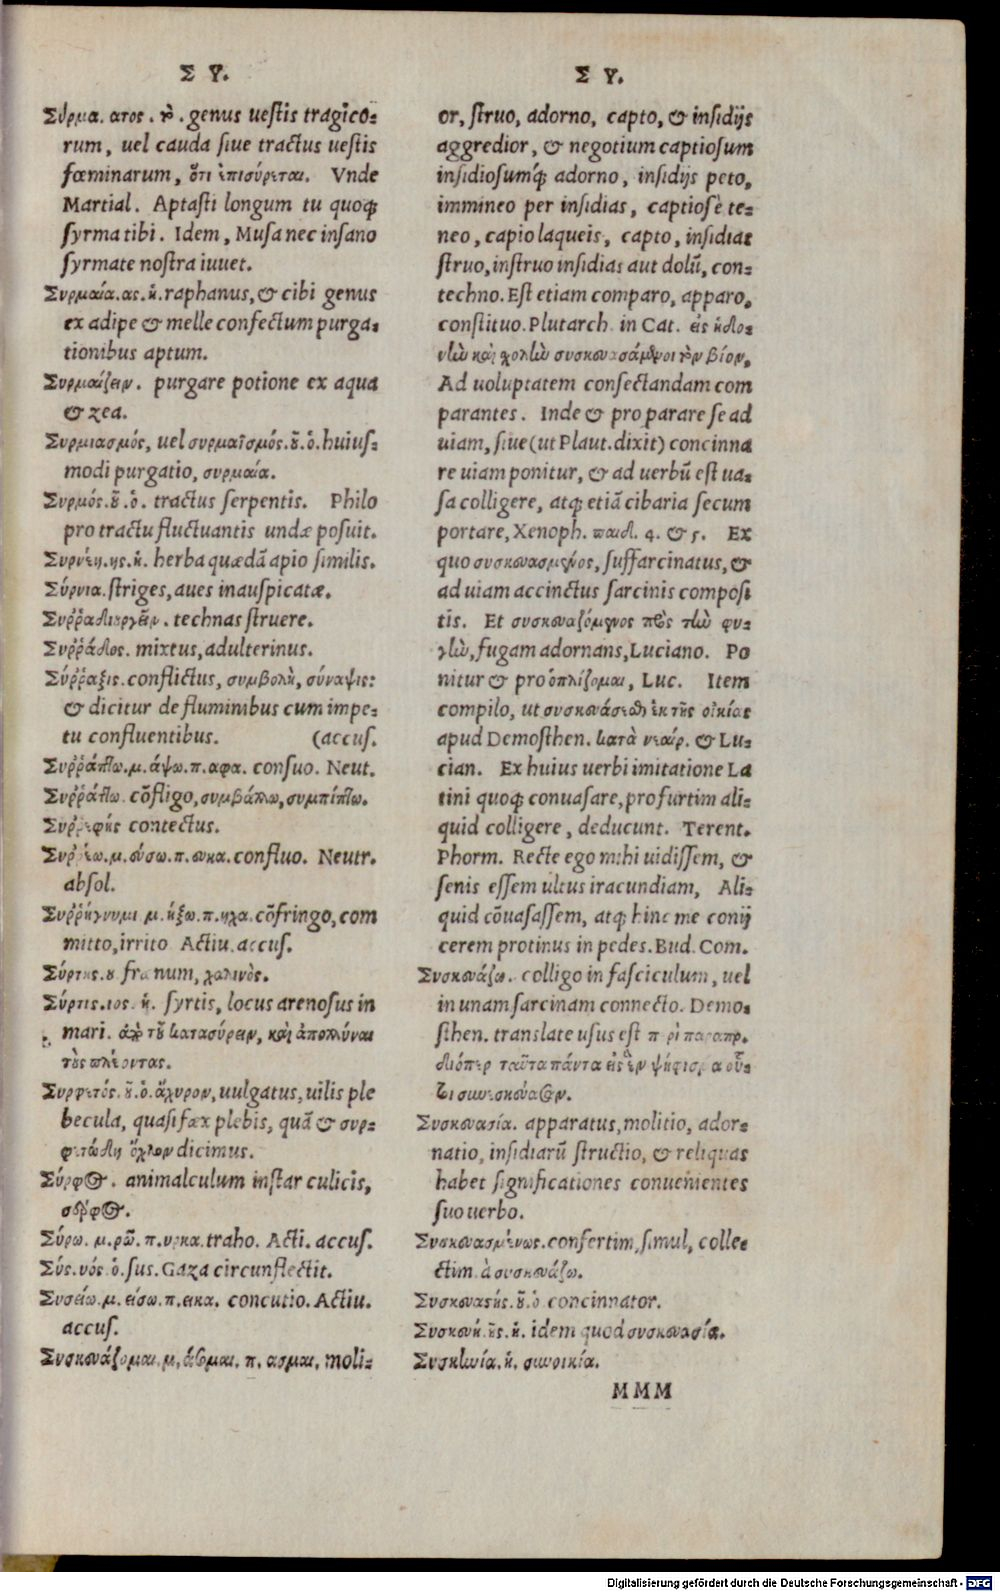 Σ Υ.
Σύρμα. ατος. τὸ. genus uestis tragico=
rum, uel cauda siue tractus uestis
fœminarum, ὅτι ἐπισύρεται. Vnde
Martial. Aptasti longum tu quoqꝫ
syrma tibi. Idem, Musa nec insano
syrmate nostra iuuet.
Συρμαία.ας.ἡ.raphanus,& cibi genus
ex adipe & melle confectum purga=
tionibus aptum.
Συρμαΐζειν. purgare potione ex aqua
& zea.
Συρμιασμός, uel συρμαϊσμός.οῦ.ὁ.huius=
modi purgatio, συρμαία.
Συρμός.οῦ.ὁ. tractus serpentis. Philo
pro tractu fluctuantis undæ posuit.
Συρνέη.ης.ἡ. herba quædã apio similis.
Σύρνια.striges,aues inauspicatæ.
Συῤῥαδιουργεῖν. technas struere.
Συῤῥάδιος. mixtus,adulterinus.
Σύῤῥαξις.conflictus, συμβολὴ, σύναψις:
& dicitur de fluminibus cum impe=
tu confluentibus. (accus.
Συῤῥάπτω.μ.άψω.π.αφα. consuo. Neut.
Συῤῥάττω. cõfligo,συμβάλλω,συμπίπτω.
Συῤῥεφής contectus.
Συῤῥέω.μ.εύσω.π.ευκα.confluo. Neutr.
absol.
Συῤῥήγνυμι μ.ήξω.π.ηχα.cõfringo,com
mitto,irrito Actiu.accus.
Σύρτης.ου frænum, χαλινὸς.
Σύρτις.ιος. ἡ. syrtis, locus arenosus in
mari. ἀπὸ τοῦ κατασύρειν, καὶ ἀπολλύναι
τοὺς πλέοντας.
Συρφετός.οῦ.ὁ.ἄχυρον,uulgatus,uilis ple
becula, quasi fæx plebis, quã & συρ=
φετώδη ὄχλον dicimus.
Σύρφος. animalculum instar culicis,
σέρφος.
Σύρω. μ.ρῶ. π.υρκα.traho. Acti. accus.
Σύς.υός.ὁ.sus.Gaza circunflectit.
Συσείω.μ.είσω.π.εικα. concutio.Actiu.
accus.
Συσκευάζομαι.μ.άσομαι. π. ασμαι. moli=
Σ Υ.
or, struo, adorno, capto, & insidijs
aggredior, & negotium captiosum
insidiosumqꝫ adorno, insidijs peto,
immineo per insidias, captiosè te=
neo, capio laqueis, capto, insidias
struo,instruo insidias aut dolũ, con=
techno.Est etiam comparo, apparo,
constituo.Plutarch in Cat. εἰς ἡδο=
νὴν καὶ χολὴν συσκευασάμενοι τὸν βίον.
Ad uoluptatem consectandam com
parantes. Inde & pro parare se ad
uiam, siue (ut Plaut.dixit) concinna
re uiam ponitur, & ad uerbũ est ua=
sa colligere, atqꝫ etiã cibaria secum
portare, Xenoph. παιδ. 4. & 5. Ex
quo συσκευασμένος, suffarcinatus, &
ad uiam accinctus sarcinis composi
tis. Et συσκευαζόμενος πρὸς τὴν φυ=
γὴν, fugam adornans,Luciano. Po
nitur & pro ὁπλίζομαι, Luc. Item
compilo, ut συσκευάσεσθαι ἐκ τῆς οἰκίας
apud Demosthen. κατὰ νεαίρ. & Lu=
cian. Ex huius uerbi imitatione La
tini quoqꝫ conuasare,pro furtim ali=
quid colligere, deducunt. Terent.
Phorm. Recte ego mihi uidissem, &
senis essem ultus iracundiam, Ali=
quid cõuasassem, atqꝫ hinc me conij
cerem protinus in pedes.Bud.Com.
Συσκευάζω. colligo in fasciculum, uel
in unam sarcinam connecto. Demo=
sthen. translate usus est περὶ παραπρ.
διόπερ ταῦτα πάντα εἰς ἓν ψήφισμα οὗ=
τοι συνεσκεύασαν.
Συσκευασία. apparatus,molitio, ador=
natio, insidiarũ structio, & reliquas
habet significationes conuenientes
suo uerbo.
Συσκευασμένως.confertim,simul, colle=
ctim.à συσκευάζω.
Συσκευαστής.οῦ.ὁ concinnator.
Συσκευή.ῆς.ἡ. idem quod συσκευασία.
Συσκηνία.ἡ. συνοικία.
MMM
Digitalisierung gefördert durch die Deutsche Forschungsgemeinschaft - DFG